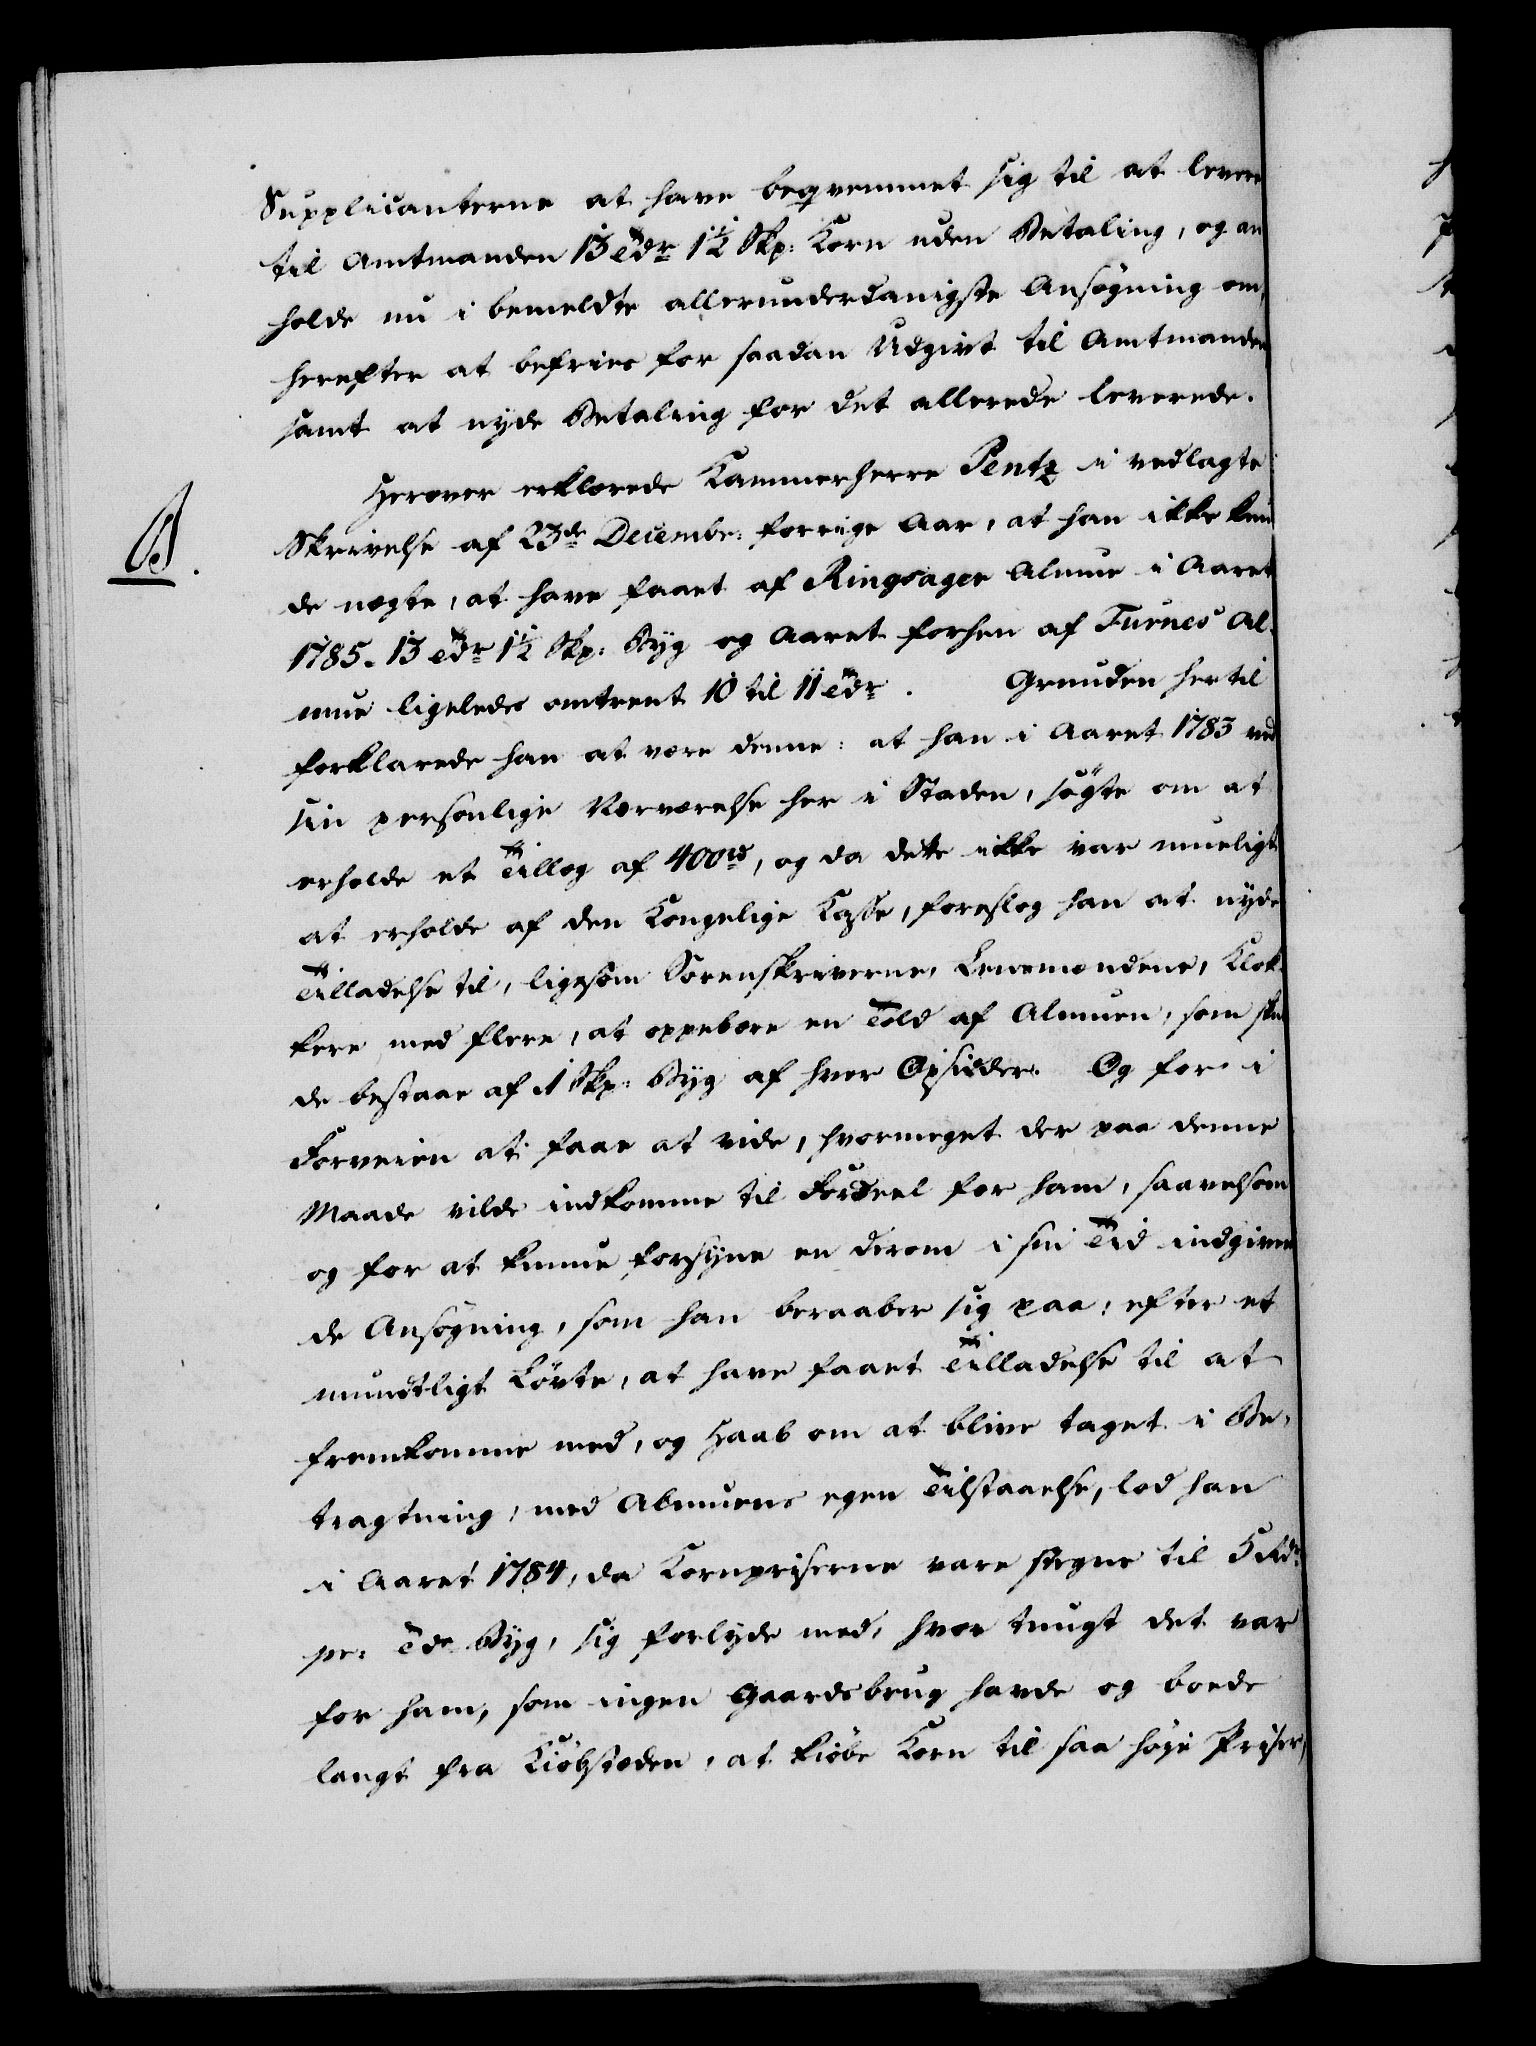 Supplicanterne at have beqvemmet sig til at levere
til Amtmanden 13 Tdr 1½ Skp: Korn uden Betaling, og an
holde nu i bemeldte allerunderdanigste Ansøgning om,
herefter at befries for saadan Udgivt til Amtmanden
samt at nyde Betaling for det allerede leverede.
Herover erklærede Kammerherre Pentz i vedlagte
B.
Skrivelse af 23de Decembr: forrige Aar, at han ikke kun
de nægte, at have faaet af Ringsager Almue i Aaret
1785. 13 Tdr 1½ Skp: Byg og Aaret forhen af Furnes Al-
mue ligeledes omtrent 10 til 11 Tdr. Grunden hertil
forklarede han at være denne: at han i Aaret 1783 ved
sin personlige Nærværelse her i Staden, søgte om at
erholde et Tillæg af 400 rd, og da dette ikke var mueligt
at erholde af den Kongelige Casse, foreslog han at nyde
Tilladelse til, ligesom Sorenskriverne, Lensmændene, Klok-
kere med flere, at oppebære en Told af Almuen, som skul
de bestaae af 1 Skp: Byg af hver Opsidder. Og for i
Forveien at faae at vide, hvormeget der paa denne
Maade vilde indkomme til Fordeel for ham, saavelsom
og for at kunne forsyne en derom i sin Tid indgiven
de Ansøgning, som han beraaber sig paa, efter et
mundtligt Løvte, at have faaet Tilladelse til at
fremkomme med, og Haab om at blive taget i Be-
tragtning, med Almuens egen Tilstaaelse, lod han
i Aaret 1784, da Kornpriserne vare stegne til 5 Rdr
pr: Tde Byg, sig forlyde med, hvor tungt det var
for ham, som ingen Gaardsbrug havde og boede
langt fra Kiøbstæden, at kiøbe Korn til saa høye Priser,